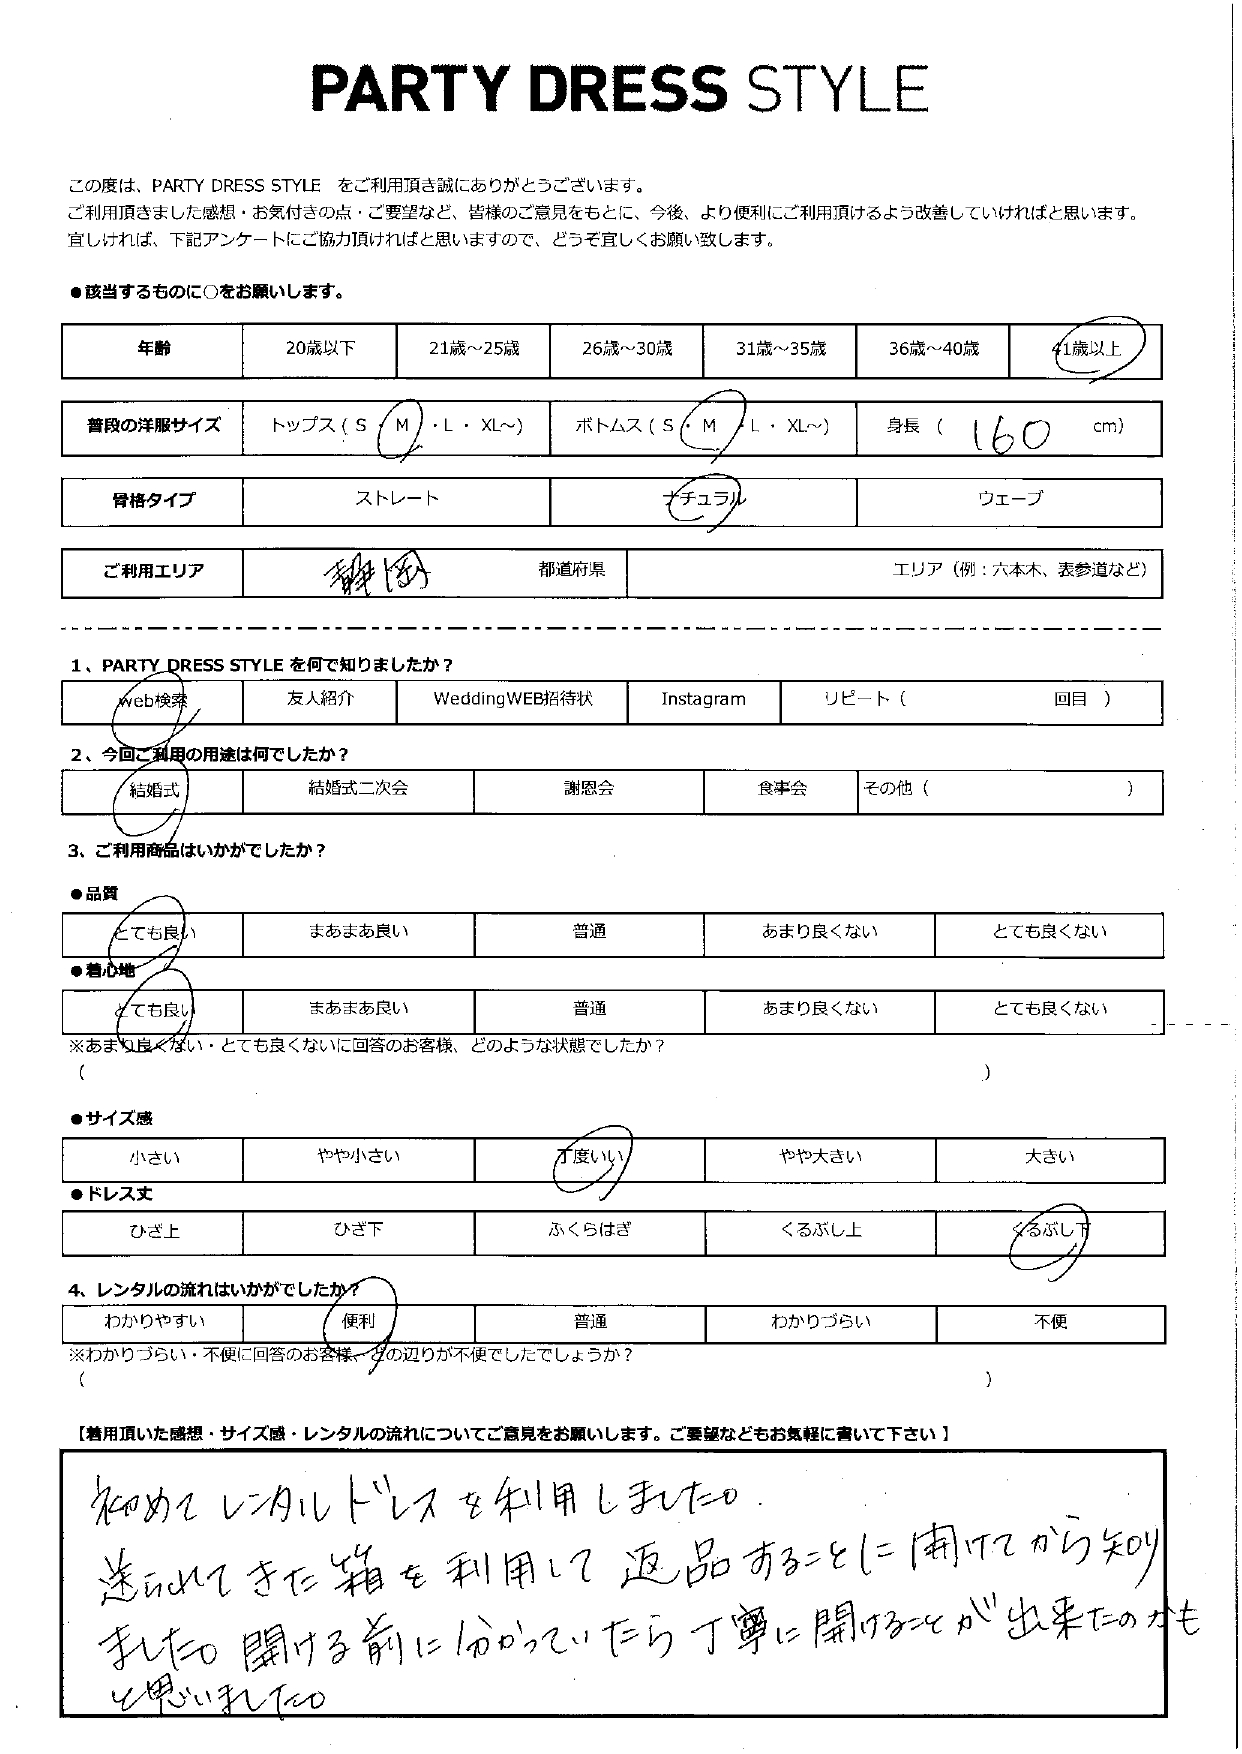 PARTY DRESS STYLE
この度は、PARTY DRESS STYLE をご利用頂き誠にありがとうございます。
ご利用頂きました感想・お気付きの点・ご要望など、皆様のご意見をもとに、今後、より便利にご利用頂けるよう改善していければと思います。
宜しければ、下記アンケートにご協力頂ければと思いますので、どうぞ宜しくお願い致します。
●該当するものに○をお願いします。
年齢 20歳以下 21歳～25歳 26歳～30歳 31歳～35歳 36歳～40歳 41歳以上
普段の洋服サイズ トップス ( S ・ M ・ L ・ XL～) ボトムス ( S ・ M ・ L ・ XL～) 身長 ( 160 cm)
骨格タイプ ストレート ナチュラル ウェーブ
ご利用エリア 静岡 都道府県 エリア（例：六本木、表参道など）
1、PARTY DRESS STYLE を何で知りましたか？
web検索 友人紹介 WeddingWEB招待状 Instagram リピート ( 回目 )
2、今回ご利用の用途は何でしたか？
結婚式 結婚式二次会 謝恩会 食事会 その他 ( )
3、ご利用商品はいかがでしたか？
●品質
とても良い まあまあ良い 普通 あまり良くない とても良くない
●着心地
とても良い まあまあ良い 普通 あまり良くない とても良くない
※あまり良くない・とても良くないに回答のお客様、どのような状態でしたか？
( )
●サイズ感
小さい やや小さい 丁度いい やや大きい 大きい
●ドレス丈
ひざ上 ひざ下 ふくらはぎ くるぶし上 くるぶし下
4、レンタルの流れはいかがでしたか？
わかりやすい 便利 普通 わかりづらい 不便
※わかりづらい・不便に回答のお客様、どの辺りが不便でしたでしょうか？
( )
【着用頂いた感想・サイズ感・レンタルの流れについてご意見をお願いします。ご要望などもお気軽に書いて下さい】
初めてレンタルドレスを利用しました。
送られてきた箱を利用して返品することに開けてから知り
ました。開ける前に分かっていたら丁寧に開けることが出来たのかも
と思いました。